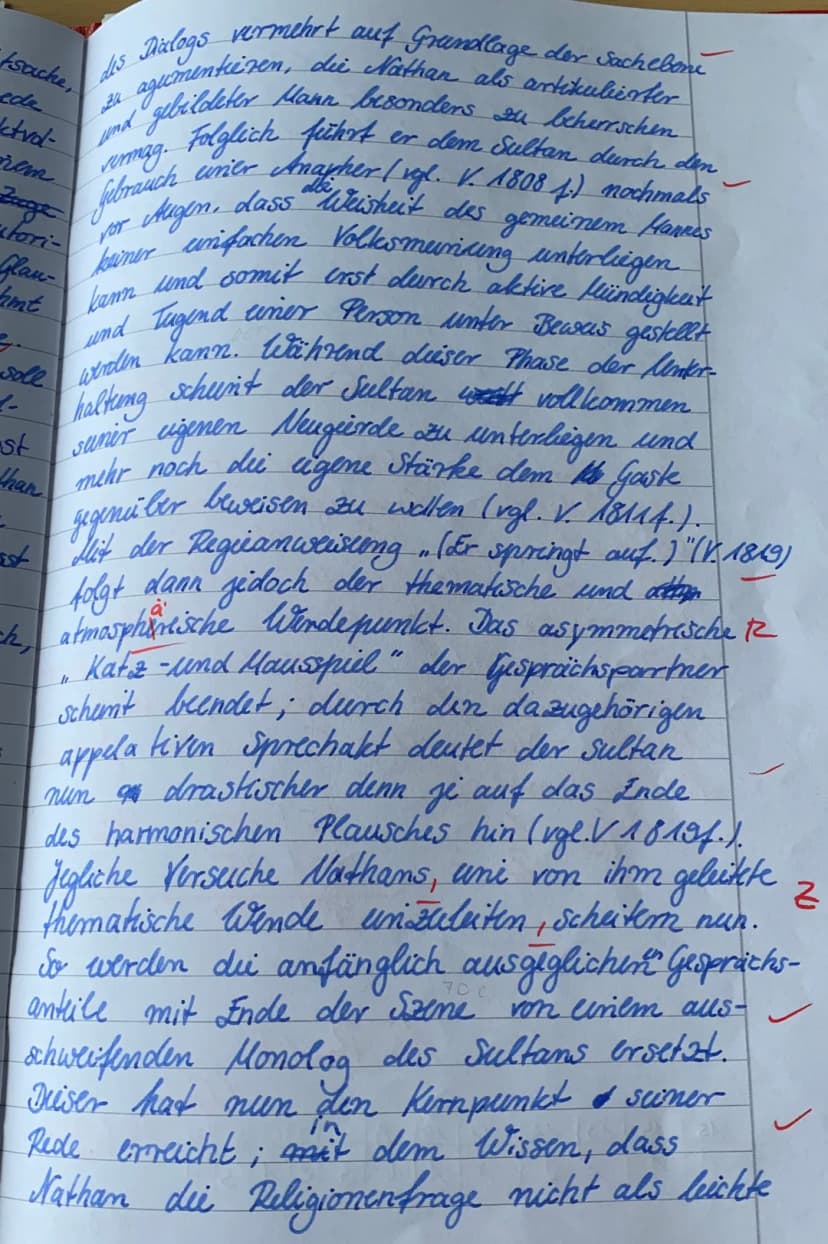 des Dialogs vermehrt auf Grundlage der Sachebene
zu agumentieren, die Nathan als artikulierter
und gebildeter Mann besonders zu beherrschen
vermag. Folglich führt er dem Sultan durch den
Gebrauch einer Anapher (vgl. V. 1808 f.) nochmals
vor Augen, dass die Weisheit des gemeinem Mannes
keiner einfachen Volksmeinung unterliegen
kann und somit erst durch aktive Mündigkeit
und Tugend einer Person unter Beweis gestellt
werden kann. Während dieser Phase der Unter-
haltung scheint der Sultan vollkommen
seiner eigenen Neugierde zu unterliegen und
mehr noch die eigene Stärke dem Gaste
gegenüber beweisen zu wollen (vgl. V. 1811f.).
Mit der Regieanweisung „(Er springt auf.)"(V.1819)
folgt dann jedoch der thematische und
atmosphärische Wendepunkt. Das asymmetrische R
„Katz-und Mausspiel" der Gesprächspartner
scheint beendet; durch den dazugehörigen
appelativen Sprechakt deutet der Sultan
nun drastischer denn je auf das Ende
des harmonischen Plausches hin (vgl.V 1819f.).
Jegliche Versuche Nathans, eine von ihm geleitete
thematische Wende einzuleiten, scheitern nun. Z
So werden die anfänglich ausgeglichenen Gesprächs-
anteile mit Ende der Szene von einem aus-
schweifenden Monolog des Sultans ersetzt.
Dieser hat nun den Kernpunkt seiner
Rede erreicht; in dem Wissen, dass
Nathan die Religionenfrage nicht als leichte
tsache,
ede
nem
utori-
Glau-
hmt
soll
than